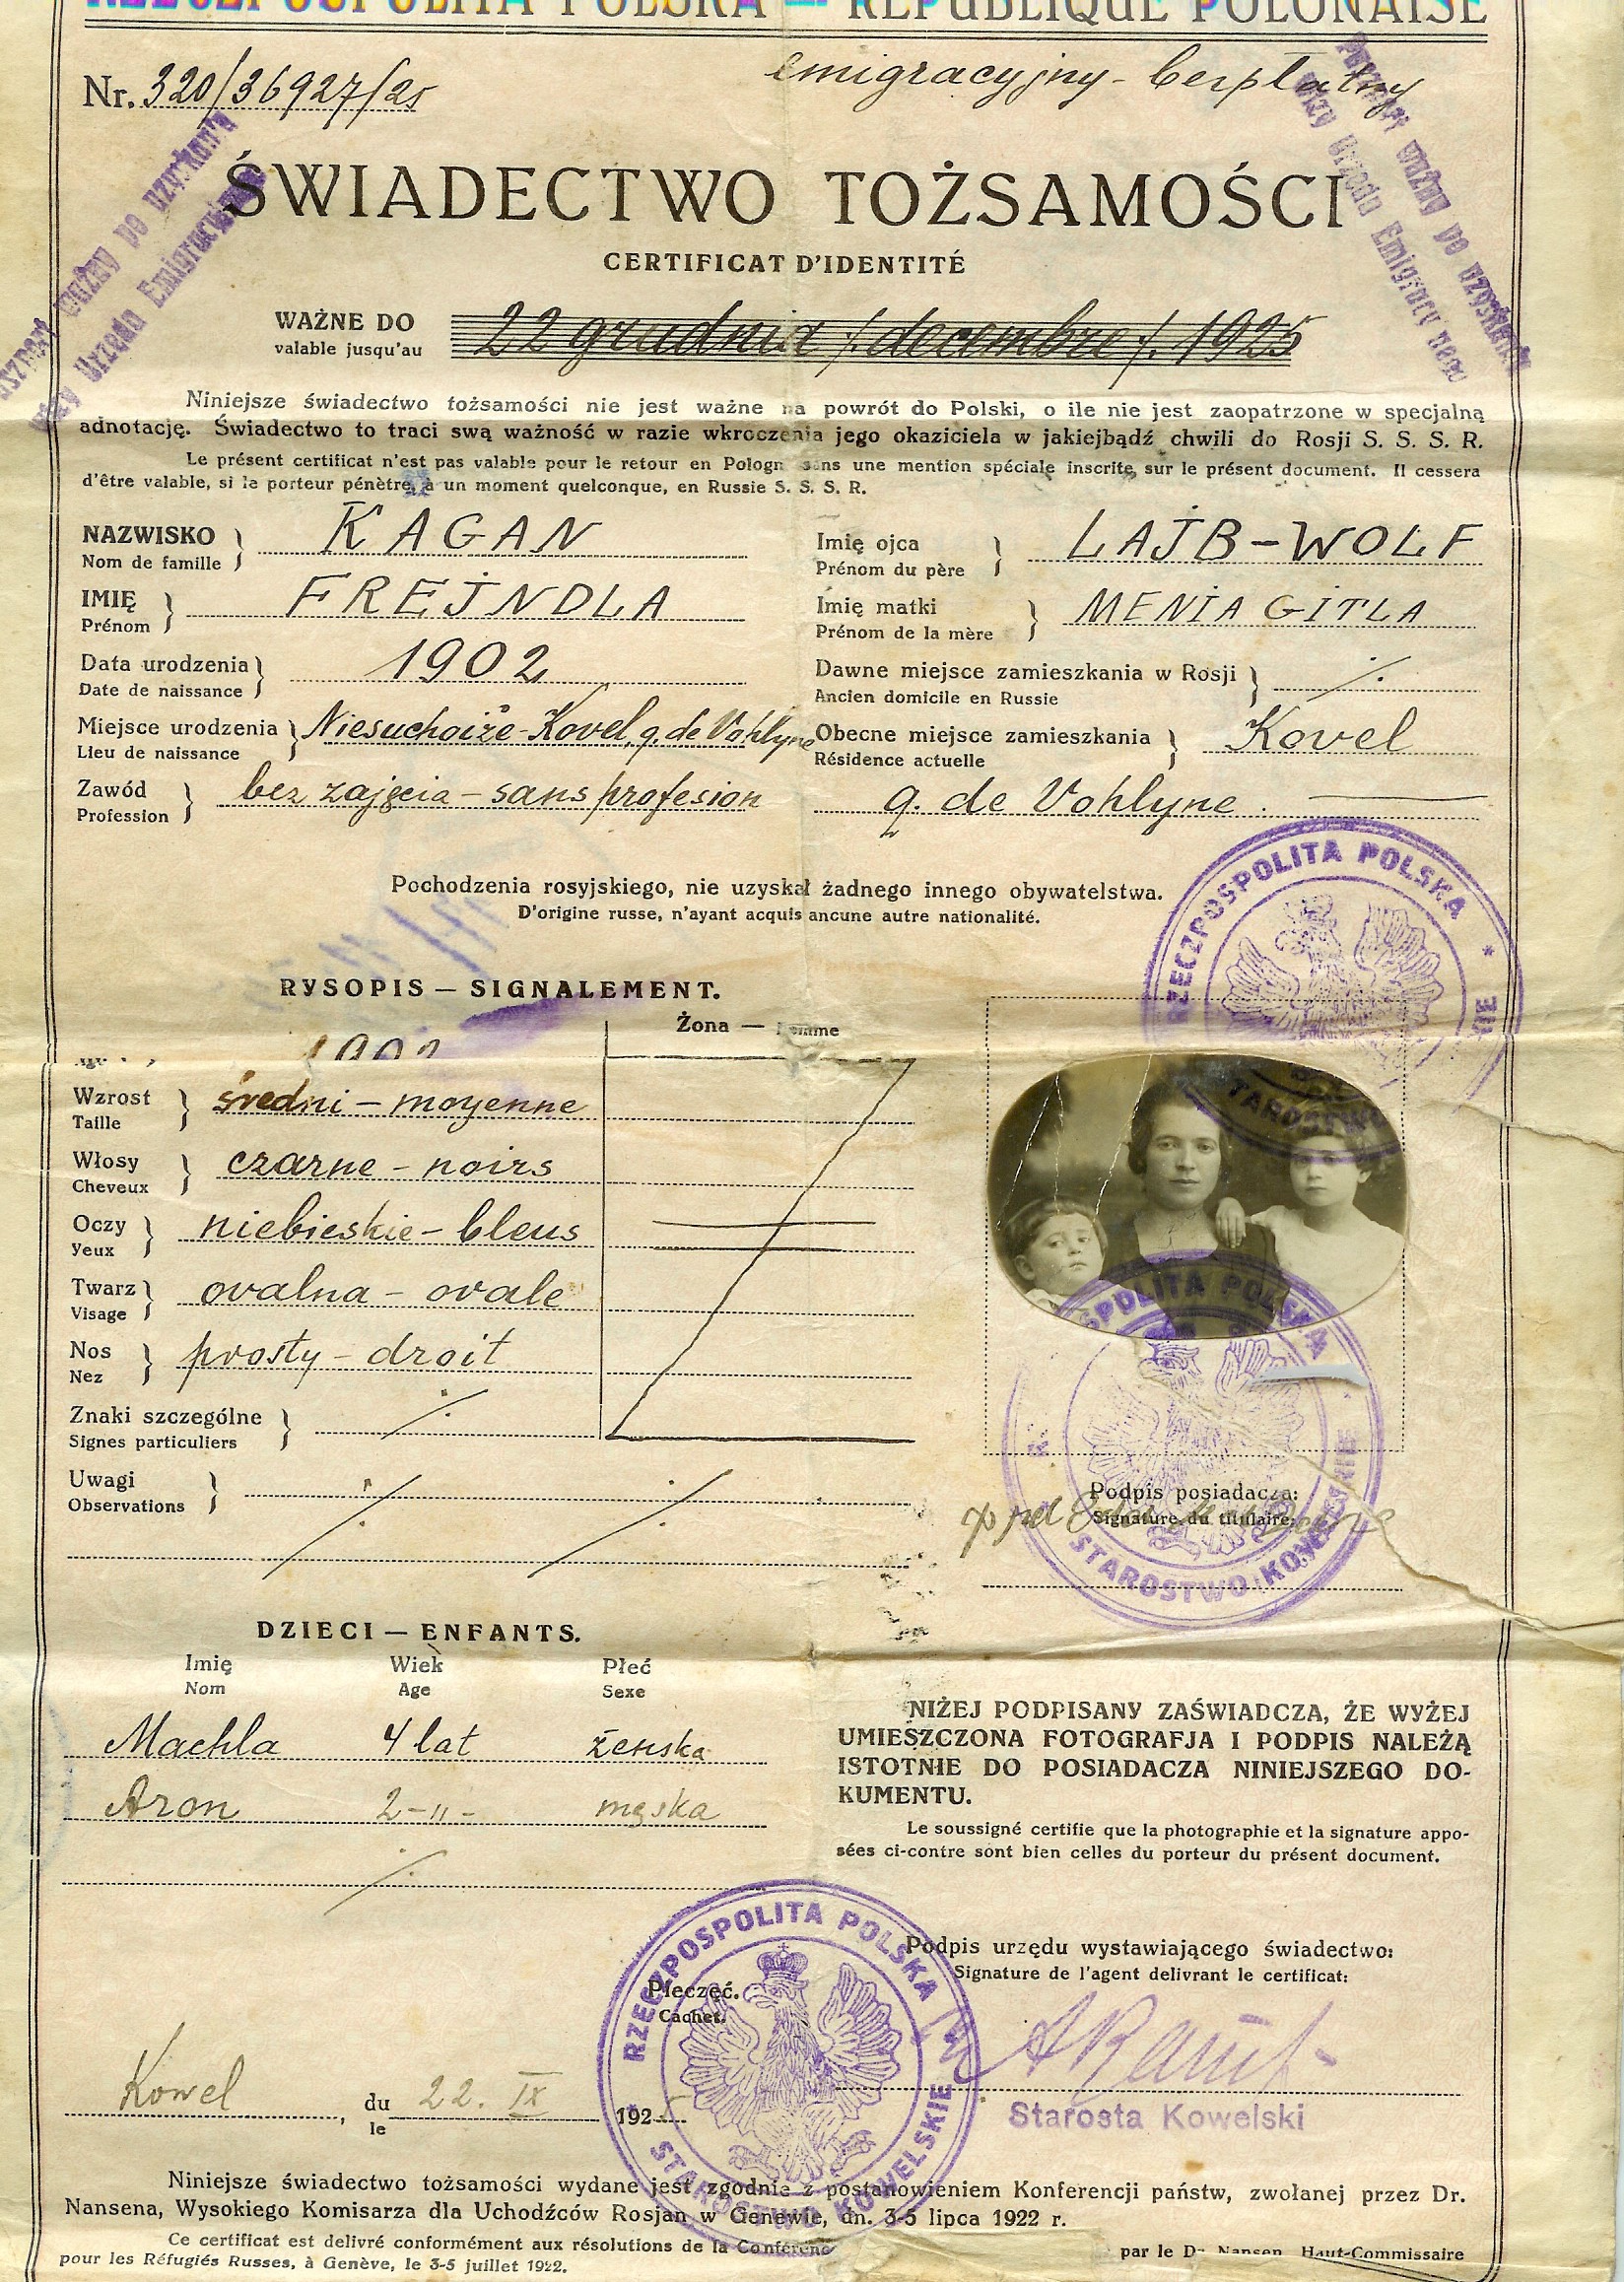 RZECZPOSPOLITA POLSKA — REPUBLIQUE POLONAISE
Nr. 320/36927/25
emigracyjny - bezpłatny
ważny po uzyskaniu
wizy Urzędu Emigracyjnego
ŚWIADECTWO TOŻSAMOŚCI
CERTIFICAT D'IDENTITÉ
WAŻNE DO 22 grudnia /decembre/. 1925
valable jusqu'au
Niniejsze świadectwo tożsamości nie jest ważne na powrót do Polski, o ile nie jest zaopatrzone w specjalną
adnotację. Świadectwo to traci swą ważność w razie wkroczenia jego okaziciela w jakiejbądź chwili do Rosji S. S. S. R.
Le présent certificat n'est pas valable pour le retour en Pologn sans une mention spéciale inscrite, sur le présent document. Il cessera
d'être valable, si le porteur pénètre, à un moment quelconque, en Russie S. S. S. R.
NAZWISKO KAGAN
Nom de famille
IMIĘ FREJNDLA
Prénom
Data urodzenia 1902
Date de naissance
Miejsce urodzenia Niesuchoiże-Kovel, g. de Vohlyne
Lieu de naissance
Zawód bez zajęcia - sans profesion
Profession
Imię ojca LAJB-WOLF
Prénom du père
Imię matki MENIA GITLA
Prénom de la mère
Dawne miejsce zamieszkania w Rosji ·/.
Ancien domicile en Russie
Obecne miejsce zamieszkania Kovel
Résidence actuelle
g. de Vohlyne.
Pochodzenia rosyjskiego, nie uzyskał żadnego innego obywatelstwa.
D'origine russe, n'ayant acquis ancune autre nationalité.
RYSOPIS — SIGNALEMENT.
Żona — Femme
1902
Wzrost średni - moyenne
Taille
Włosy czarne - noirs
Cheveux
Oczy niebieskie - bleus
Yeux
Twarz ovalna - ovale
Visage
Nos prosty - droit
Nez
Znaki szczególne ·/.
Signes particuliers
Uwagi ·/. ·/.
Observations
RZECZPOSPOLITA POLSKA
STAROSTWO
RZECZPOSPOLITA POLSKA
STAROSTWO KOWELSKIE
Podpis posiadacza:
Signature du titulaire:
DZIECI — ENFANTS.
Imię Wiek Płeć
Nom Age Sexe
Machla 4 lat żeńska
Aron 2 -"- męska
·/.
NIŻEJ PODPISANY ZAŚWIADCZA, ŻE WYŻEJ
UMIESZCZONA FOTOGRAFJA I PODPIS NALEŻĄ
ISTOTNIE DO POSIADACZA NINIEJSZEGO DO-
KUMENTU.
Le soussigné certifie que la photographie et la signature appo-
sées ci-contre sont bien celles du porteur du présent document.
Podpis urzędu wystawiającego świadectwo:
Signature de l'agent delivrant le certificat:
Pieczęć.
Cachet.
RZECZPOSPOLITA POLSKA
STAROSTWO KOWELSKIE
Starosta Kowelski
Kowel, du 22. IX 1925
le
Niniejsze świadectwo tożsamości wydane jest zgodnie z postanowieniem Konferencji państw, zwołanej przez Dr.
Nansena, Wysokiego Komisarza dla Uchodźców Rosjan w Genewie, dn. 3-5 lipca 1922 r.
Ce certificat est delivré conformément aux résolutions de la Conférence par le Dr Nansen, Haut-Commissaire
pour les Réfugiés Russes, à Genève, le 3-5 juillet 1922.